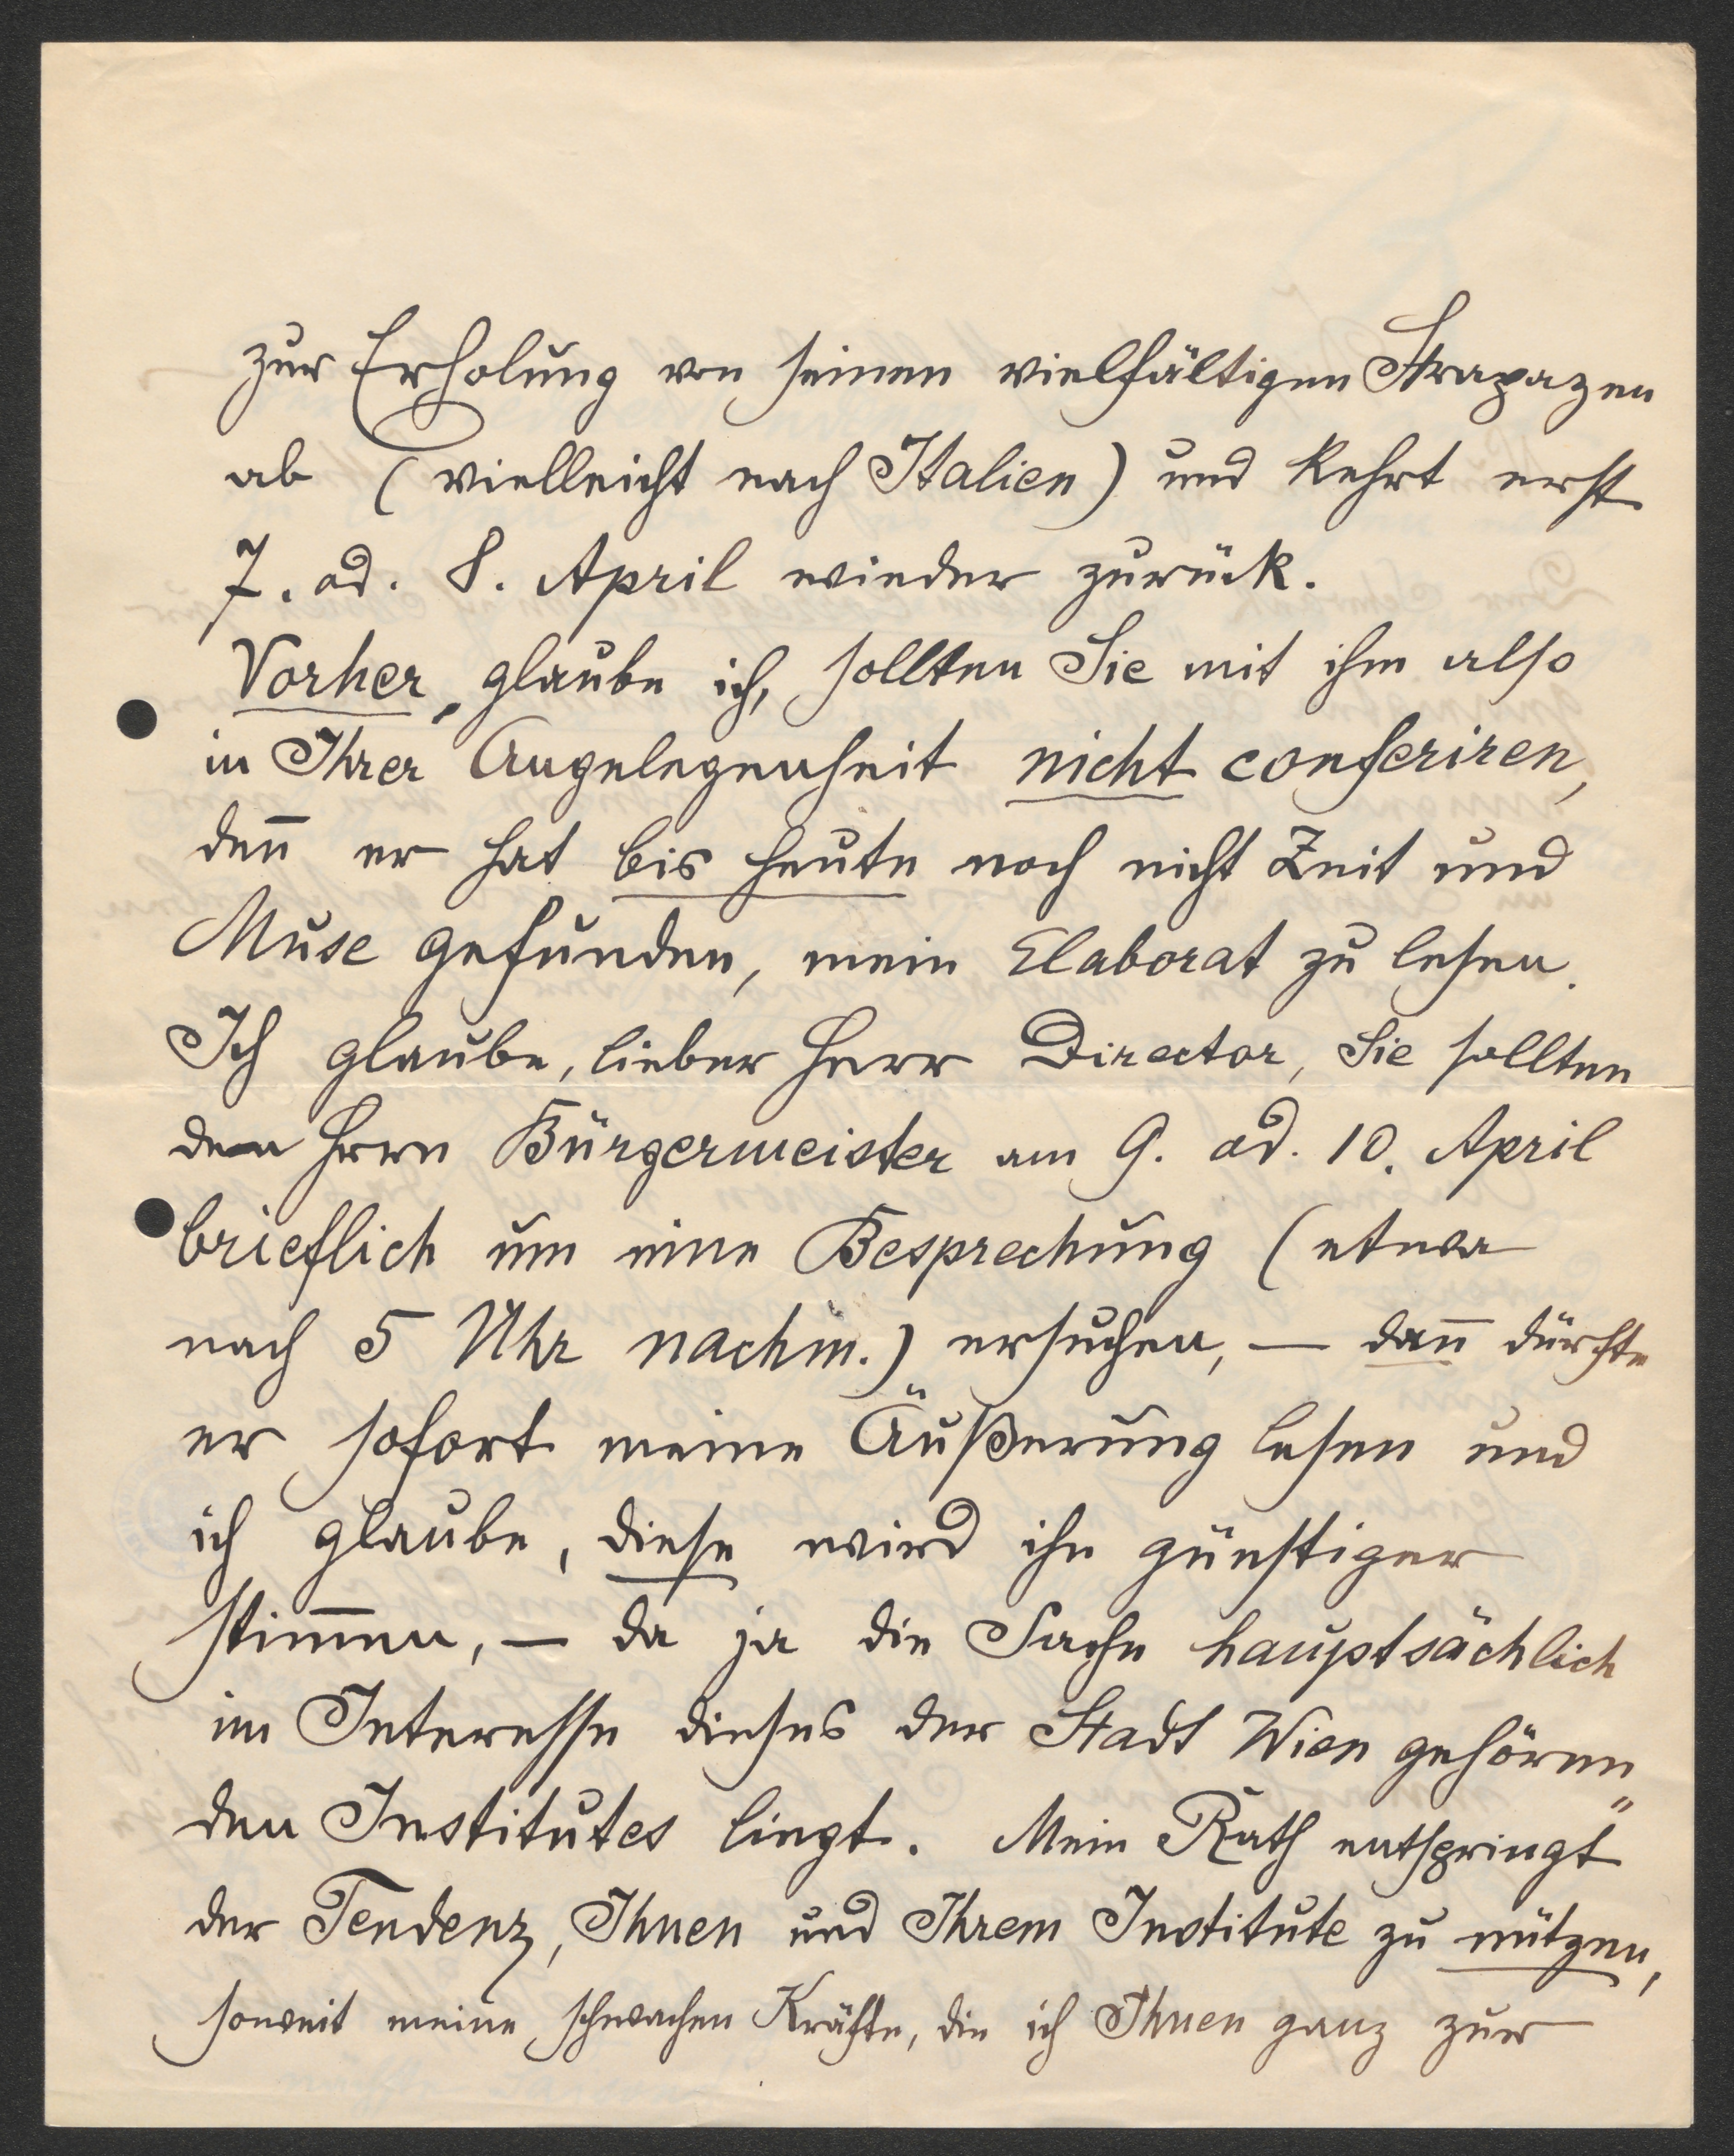 zur Erholung von seinen vielfältigen Strapazen
ab (vielleicht nach Italien) und kehrt erst
7. od. 8. April wieder zurück.
Vorher, glaube ich, sollten Sie mit ihm also
in Ihrer Angelegenheit nicht conferiren,
den̅ er hat bis heute noch nicht Zeit und
Muse gefunden, mein Elaborat zu lesen.
Ich glaube, lieber Herr Director, Sie sollten
den Herrn Bürgermeister am 9. od. 10. April
brieflich um eine Besprechung (etwa
nach 5 Uhr nachm.) ersuchen, — dan̅ dürfte
er sofort meine Äußerung lesen und
ich glaube, diese wird ihn günstiger
stim̅en, — da ja die Sache hauptsächlich
im Interesse dieses der Stadt Wien gehören„
den Institutes liegt. Mein Rath entspringt
der Tendenz, Ihnen und Ihrem Institute zu nützen,
soweit meine schwachen Kräfte, die ich Ihnen ganz zur